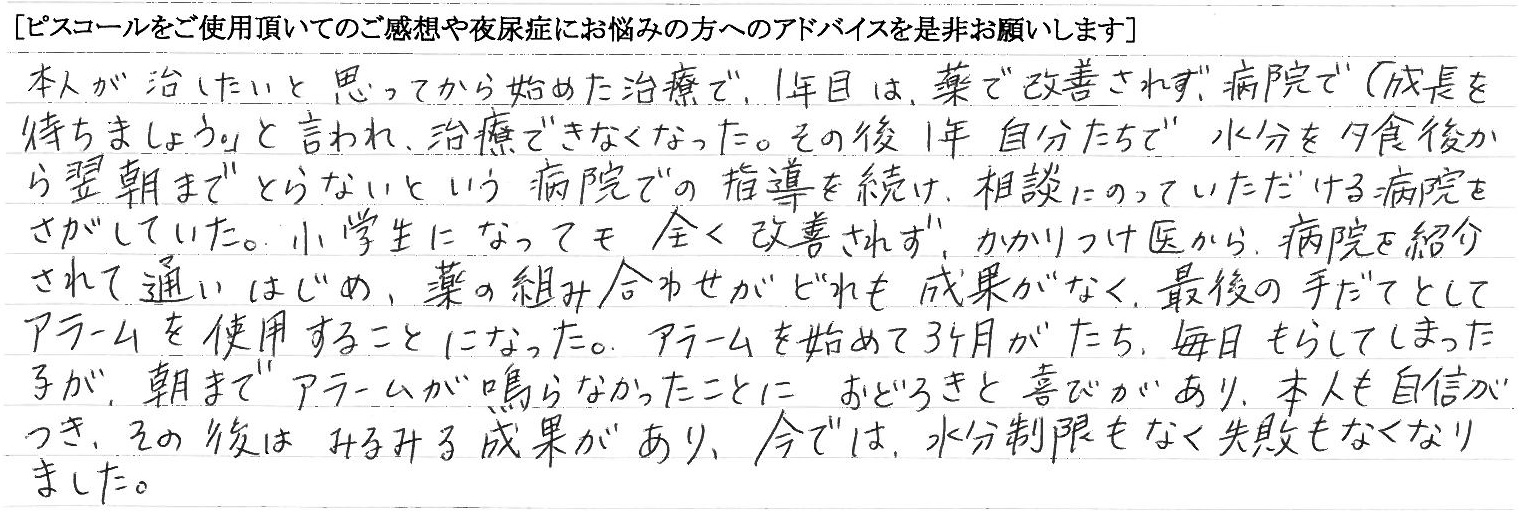 [ピスコールをご使用頂いてのご感想や夜尿症にお悩みの方へのアドバイスを是非お願いします]
本人が治したいと思ってから始めた治療で、1年目は、薬で改善されず、病院で「成長を
待ちましょう。」と言われ、治療できなくなった。その後1年 自分たちで 水分を夕食後か
ら翌朝までとらないという病院での指導を続け、相談にのっていただける病院を
さがしていた。小学生になっても全く改善されず、かかりつけ医から、病院を紹介
されて通いはじめ、薬の組み合わせがどれも成果がなく、最後の手だてとして
アラームを使用することになった。アラームを始めて3ヶ月がたち、毎日もらしてしまった
子が、朝までアラームが鳴らなかったことに おどろきと喜びがあり、本人も自信が
つき、その後はみるみる成果があり、今では、水分制限もなく失敗もなくなり
ました。